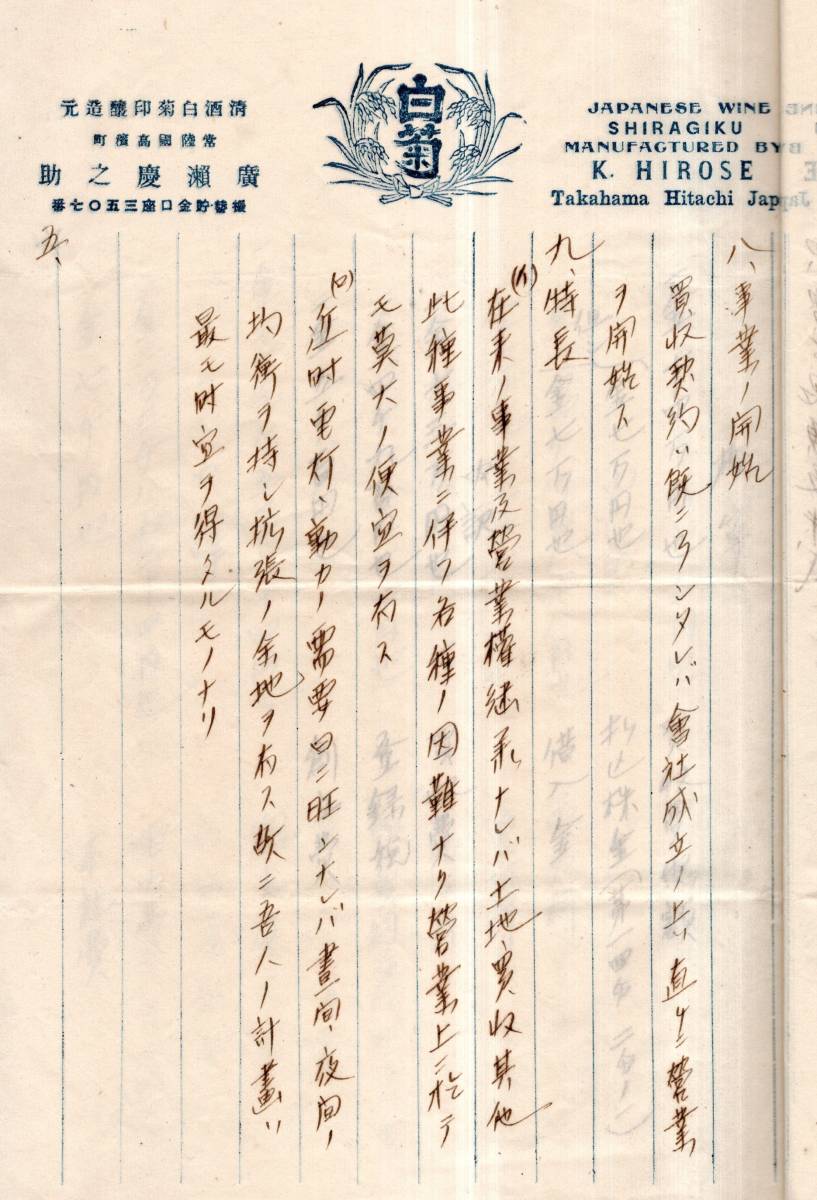 清酒白菊印醸造元
常陸國高濱町
廣瀬慶之助
振替貯金口座三五〇七番
白菊
JAPANESE WINE
SHIRAGIKU
MANUFACTURED BY
K. HIROSE
Takahama Hitachi Jap
八、事業ノ開始
買収契約ハ既ニ了シタレバ會社成立ノ上ハ直チニ營業
ヲ開始ス
九、特長
(イ)在来ノ事業及營業權継承ナレバ土地買収其他
此種事業ニ伴フ各種ノ困難ナク營業上ニ於テ
モ莫大ノ便宜ヲ有ス
(ロ)近時電灯、動力ノ需要日ニ旺ンナレバ晝間、夜間ノ
均衡ヲ持シ拡張ノ余地ヲ有ス故ニ吾人ノ計畫ハ
最モ時宜ヲ得タルモノナリ
五、